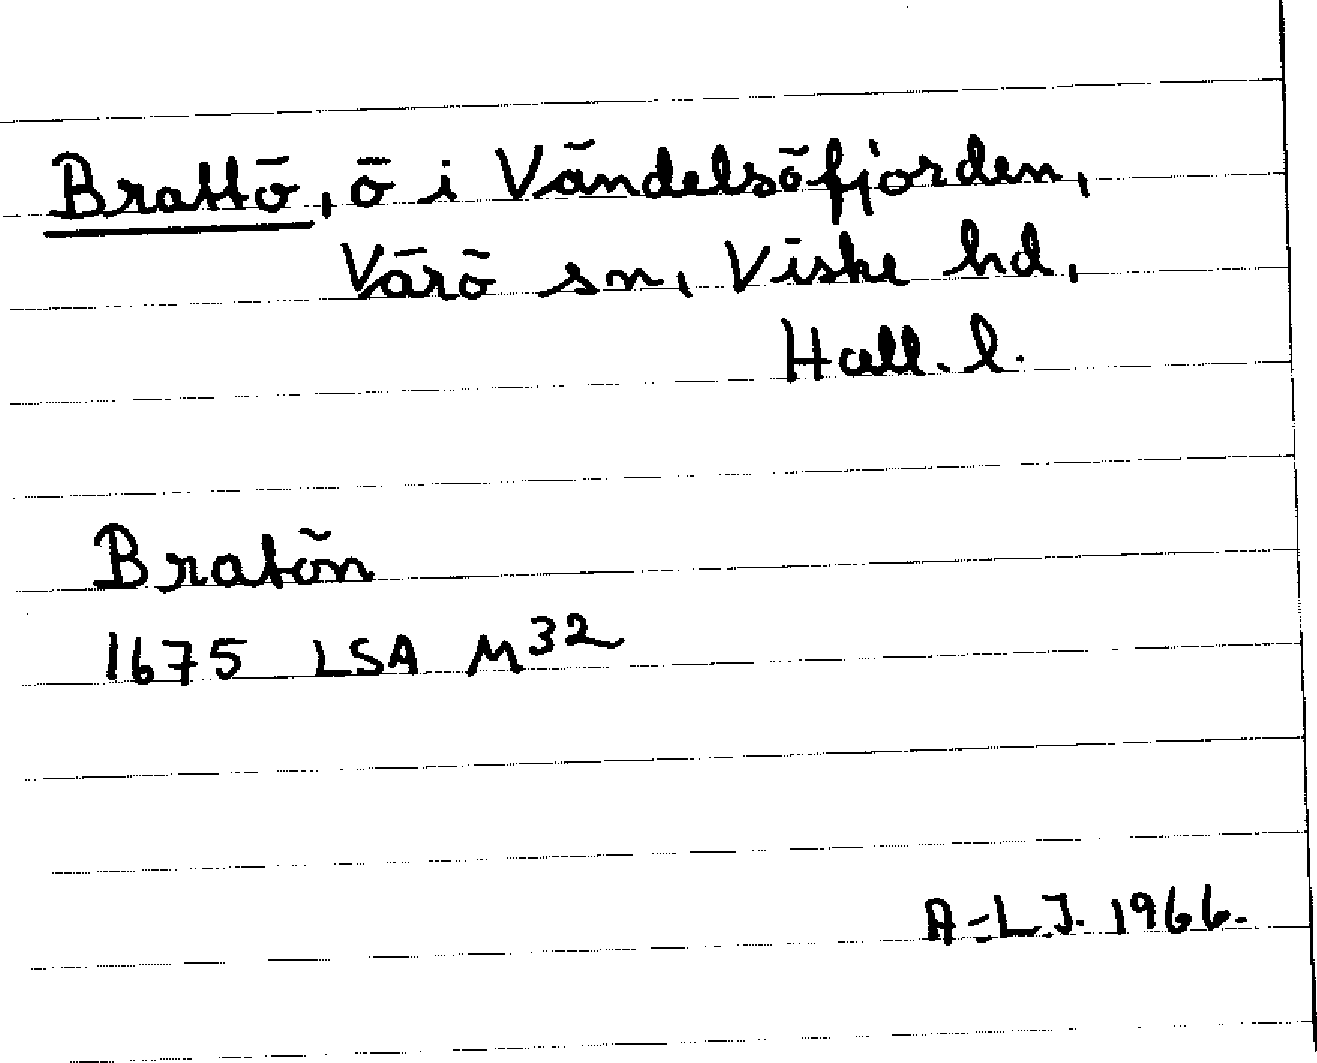 Brattö, ö i Vändelsöfjorden,
Värö sn, Viske hd,
Hall. l.
Bratön
1675 LSA M32
A-L.J. 1966.